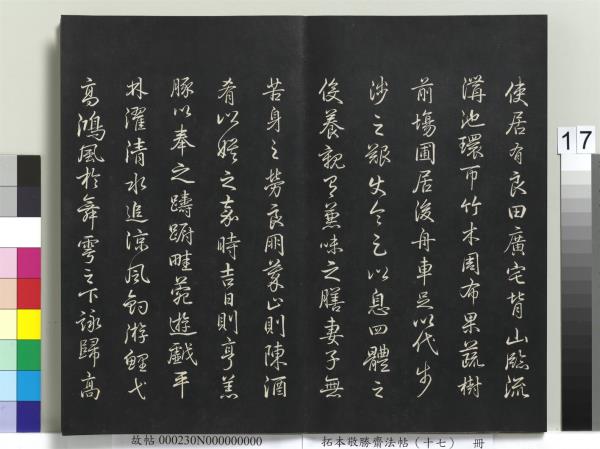 使居有良田廣宅背山臨流
溝池環帀竹木周布果蔬樹
前場圃居後舟車足以代步
涉之艱使令足以息四體之
役養親有兼味之膳妻子無
苦身之勞良朋萃止則陳酒
肴以娛之嘉時吉日則亨羔
豚以奉之躊躕畦苑遊戲平
林濯清水追涼風釣游鯉弋
高鴻風於舞雩之下詠歸高
17
故帖 000230N000000000
拓本敬勝齋法帖（十七） 冊